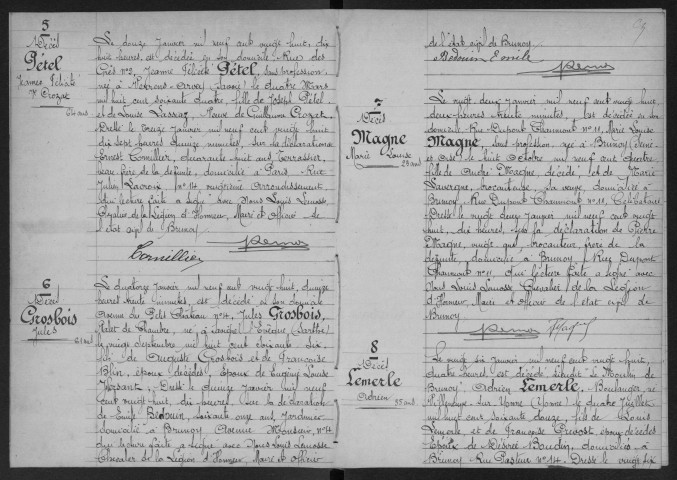 5
Décès
Pétel
Jeanne Félicité
Vve Crozet
Le douze Janvier mil neuf cent vingt huit, dix
heures, est décédée en son domicile Rue des
Grès n°2, Jeanne Félicité Pétel, sans profession
née à (Savoie) le quatre Mars
mil huit cent soixante quatre, fille de Joseph Pétel
et de Louise Veuve de Guillaume Crozet.
Dressé le treize Janvier mil neuf cent vingt huit
dix sept heures minutes, sur la déclaration
Ernest Cornillier, quarante huit ans, terrassier,
beau frère de la défunte, domicilié à Paris, Rue
Jules Lacroix n°14, arrondissement
qui lecture faite a signé avec Nous Louis Lamosse,
Chevalier de la Légion d'Honneur, Maire et officier de
l'état civil de Brunoy
Cornillier
6
Décès
Grosbois
Jules
61 ans
Le quatorze Janvier mil neuf cent vingt huit, quinze
heures trente minutes, est décédé en son domicile
Avenue du Petit Château n°14, Jules Grosbois,
Valet de Chambre, né à l'Evêque (Sarthe)
le vingt Septembre mil huit cent soixante six
fils de Auguste Grosbois et de Françoise
Blin, époux décédés, Epoux de Eugénie Louise
Dressé le quinze Janvier mil neuf
cent vingt huit, dix heures, sur la déclaration
de Emile Bedouin, soixante onze ans, Jardinier
domicilié à Brunoy Avenue Monsieur, n°
qui lecture faite a signé avec Nous Louis Lamosse
Chevalier de la Légion d'Honneur, Maire et officier
de l'état civil de Brunoy
Bedouin Emile
7
Décès
Magne
Marie Louise
23 ans
Le vingt deux Janvier mil neuf cent vingt huit,
deux heures trente minutes, est décédée en son
domicile Rue Dupont Chaumont n°11, Marie Louise
Magne, sans profession, née à Brunoy (Seine
et Oise) le huit Octobre mil neuf cent quatre
fille de André Magne, décédé, et de Marie
Lavergne, brocanteuse, sa veuve, domiciliée à
Brunoy, Rue Dupont Chaumont n°11, Célibataire
Dressé le vingt deux Janvier mil neuf cent vingt
huit, dix heures, sur la déclaration de Pierre
Magne, vingt ans, brocanteur, frère de la
défunte, domicilié à Brunoy, Rue Dupont
Chaumont n°11, qui lecture faite a signé avec
Nous Louis Lamosse Chevalier de la Légion
d'Honneur, Maire et officier de l'état civil de
Brunoy
8
Décès
Lemerle
Adrien
55 ans
Le vingt six Janvier mil neuf cent vingt huit,
quatre heures, est décédé Le Moulin de
Brunoy, Adrien Lemerle, Boulanger, né
à sur Yonne (Yonne) le quatre Juillet
mil huit cent soixante douze, fils de Louis
Lemerle et de Françoise Prévost époux décédés
Epoux de Désirée Boudin, domiciliés à
Brunoy Rue Pasteur n°14. Dressé le vingt six